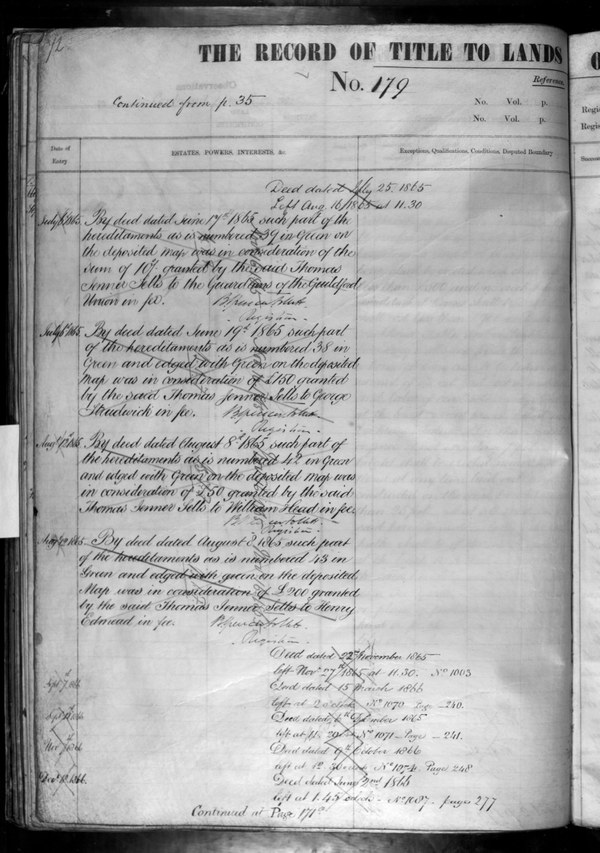 72
THE RECORD OF TITLE TO LANDS
No. 179
Reference.
Continued from p. 35
No. Vol. p.
No. Vol. p.
Date of Entry
ESTATES, POWERS, INTERESTS, &c.
Exceptions, Qualifications, Conditions, Disputed Boundary
Deed dated July 25 1865
Left Aug. 16/1865 at 11.30
1865. By deed dated June 17th 1865 such part of the
hereditaments as is numbered 39 in Green on
the deposited map was in consideration of the
sum of granted by the said Thomas
Jenner Sells to the Guardians of the Guildford
Union in fee.
Registrar.
1865. By deed dated June 19th 1865 such part
of the hereditaments as is numbered 38 in
Green and edged with Green on the deposited
Map was in consideration of £150 granted
by the said Thomas Jenner Sells to George
Strudwick in fee.
Registrar.
1865. By deed dated August 8th 1865 such part of
the hereditaments as is numbered 42 in Green
and edged with Green on the deposited Map was
in consideration of £50 granted by the said
Thomas Jenner Sells to William Head in fee.
Registrar.
1865. By deed dated August 8 1865 such part
of the hereditaments as is numbered 43 in
Green and edged with green on the deposited
Map was in consideration of £200 granted
by the said Thomas Jenner Sells to Henry
Edmead in fee.
Registrar.
Deed dated 22nd November 1865
left Novr 27th 1865 at 11.30. No 1003
Deed dated 15 March 1866
left at No 1070 Page 240.
Deed dated September 1865
left at No 1071 Page 241.
Deed dated 9th October 1866
left at 12 No 1074. Pages 248
Deed dated 2nd 1866
left at 1.45 No 1087. pages 277
Continued at Page 171